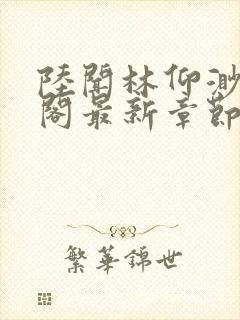 陸闻林仰渺
阁最新章節
繁華錦世